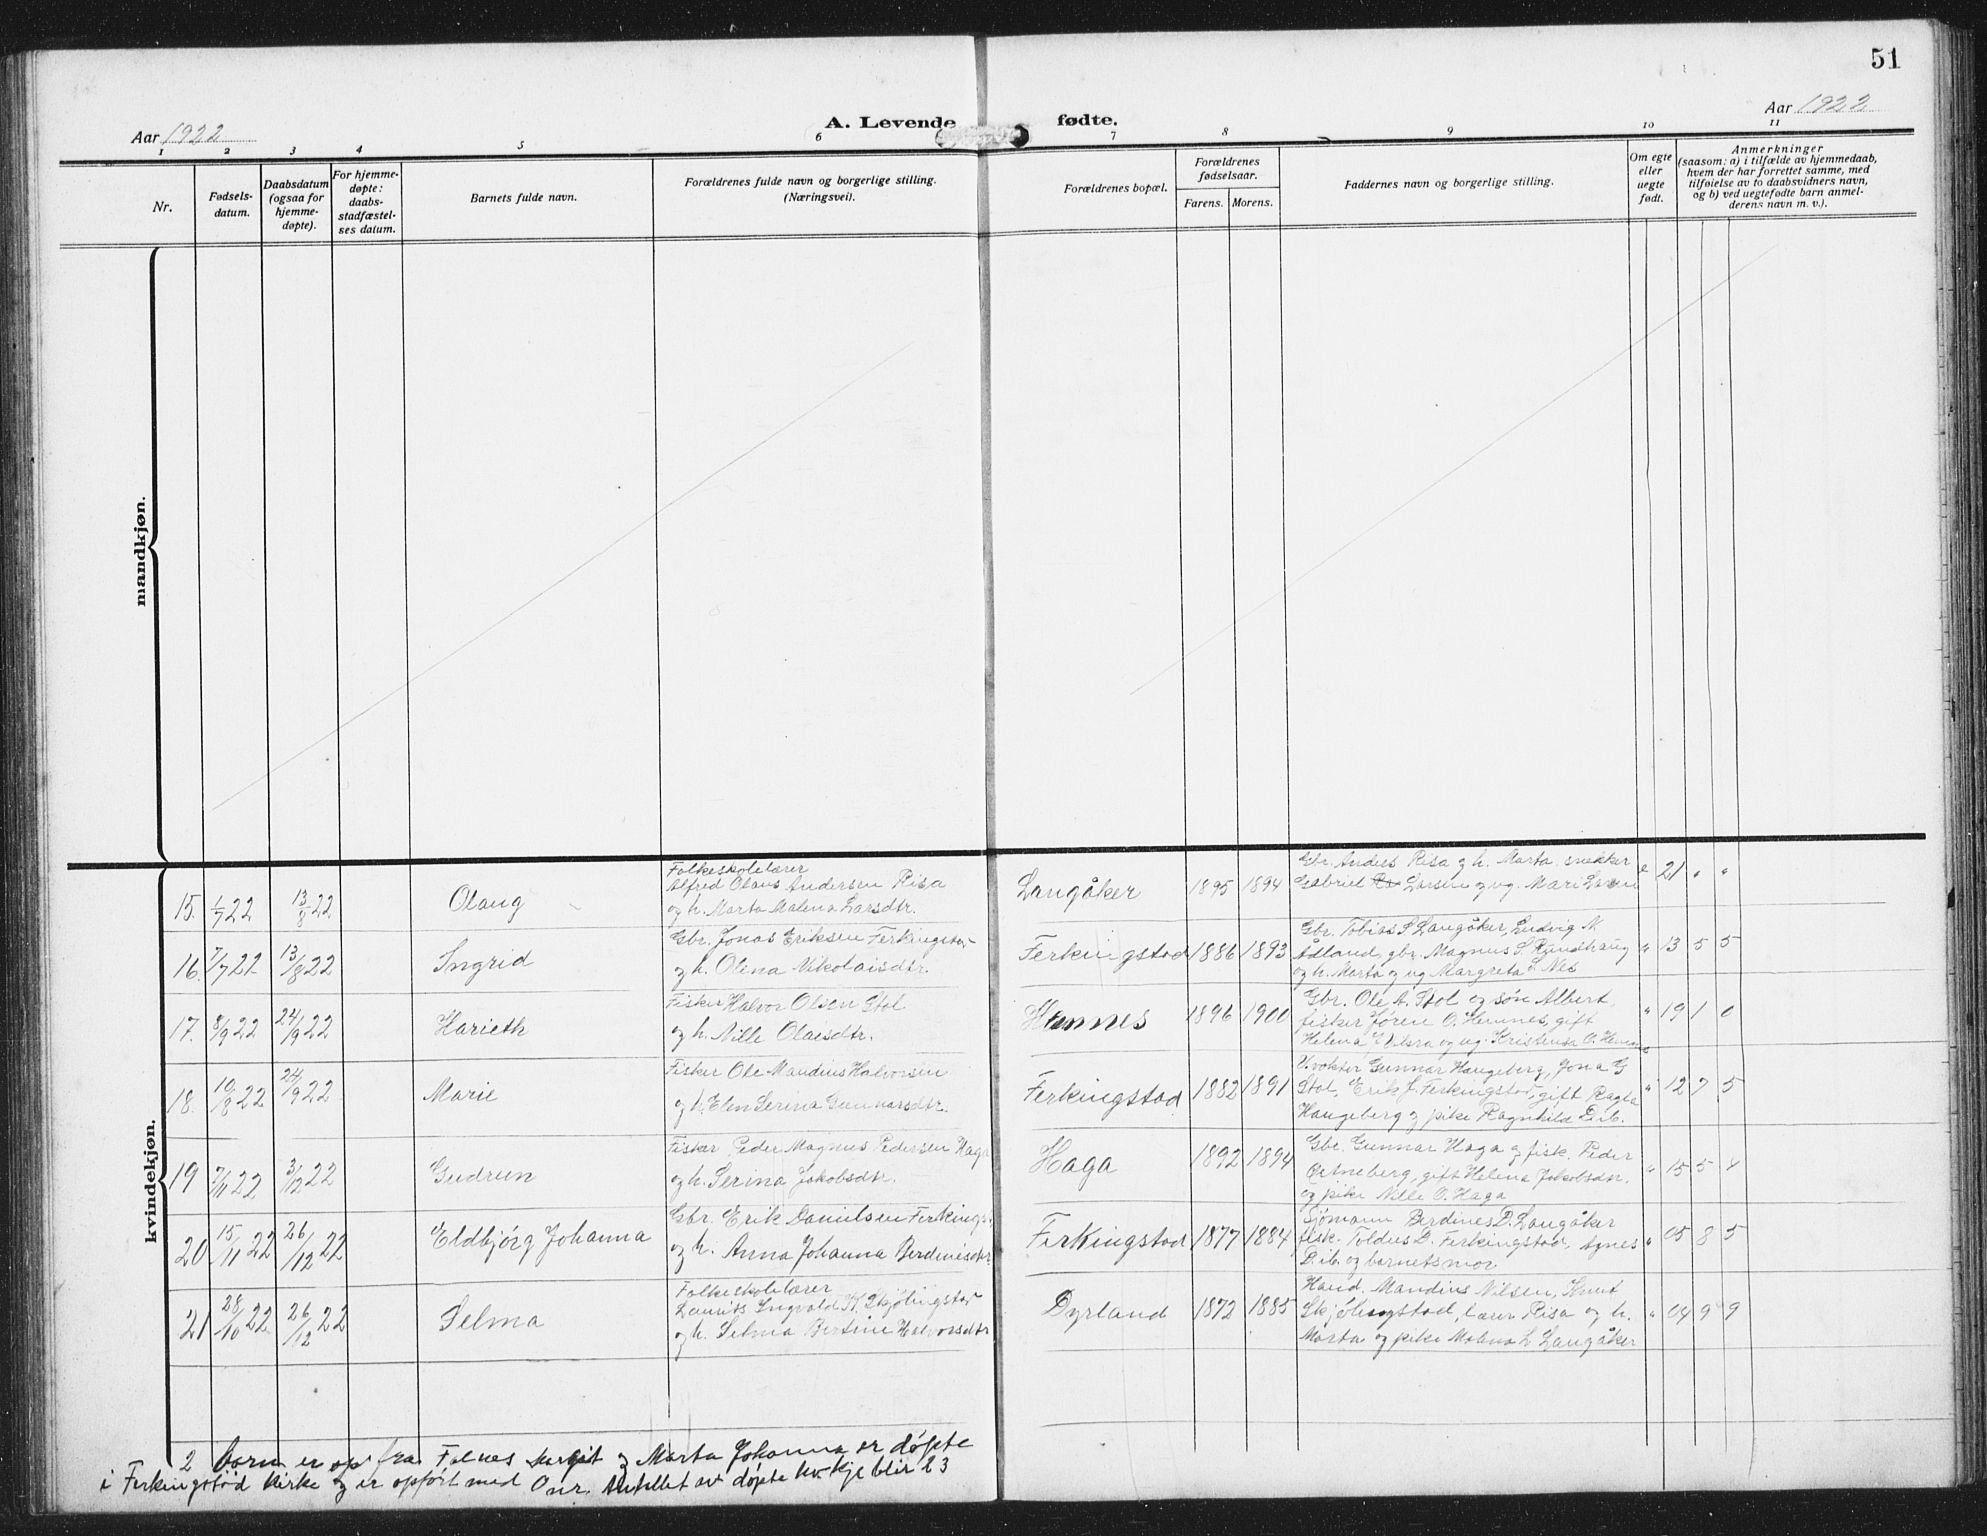 51
Aar 1922
A. Levende fødte.
Aar 1922
1 2 3 4 5 6 7 8 9 10 11
Nr.
Fødsels-
datum.
Daabsdatum
(ogsaa for
hjemme-
døpte).
For hjemme-
døpte:
daabs-
stadfæstel-
ses datum.
Barnets fulde navn.
Forældrenes fulde navn og borgerlige stilling.
(Næringsvei).
Forældrenes bopæl.
Forældrenes
fødselsaar.
Farens. Morens.
Faddernes navn og borgerlige stilling.
Om egte
eller
uegte
født.
Anmerkninger
(saasom: a) i tilfælde av hjemmedaab,
hvem der har forrettet samme, med
tilføielse av to daabsvidners navn,
og b) ved uegtefødte barn anmel-
derens navn m. v.).
mandkjøn.
kvindekjøn.
15. 1/7 22 13/8 22 Olaug
Folkeskolelærer
Alfred Olaus Andersen Risa
og h. Marta Malena Larsdtr.
Langåker 1895 1894
Gbr. Anders Risa og h. Marta snekker
Gabriel Larsen og ug. Mari Larsen
e 21 " "
16. 7/7 22 13/8 22 Ingrid
Gbr. Jonas Eriksen Ferkingstad
og h. Olena Nikolaisdtr.
Ferkingstad 1886 1893
Gbr. Tobias S Langåker, Ludvig N
Ådland, gbr. Magnus S. Rundhaug
og h. Marta og ug Margreta S. Nes
" 13 5 5
17. 8/9 22 24/9 22 Harieth
Fisker Halvor Olsen Stol
og h. Nille Olaisdtr.
Hemnes 1896 1900
Gbr. Ole A. Stol og søn Albert
fisker Jøren O. Hemnes, gift
Helena og ug. Kristense O. Hemnes
" 19 1 0
18. 10/8 22 24/9 22 Marie
Fisker Ole Mandius Halvorsen
og h. Elen Serina Gunnarsdtr.
Ferkingstad 1882 1891
Gunnar Haugeberg, Jona G
Stol, Erik J. Ferkingstad, gift
Haugeberg og pike Ragnhild D.ib.
" 12 7 5
19 7/11 22 3/12 22 Gudrun
Fisker Peder Magnus Pedersen Haga
og h. Serina Jakobsdtr.
Haga 1892 1894
Gbr. Gunnar Haga og fisk. Peder
Østneberg, gift Helena Jakobsdtr.
og pike Nille O. Haga
" 15 5 4
20 15/11 22 26/12 22 Eldbjörg Johanna
Gbr. Erik Danielsen Ferkings.
og h. Anna Johanna Berdinesdtr.
Ferkingstad 1877 1884
Sjömann Berdines D. Langåker
fisk. Toldus D. Ferkingstad, Agnes
D. ib. og barnets mor
" 05 8 5
21 28/10 22 26/12 22 Selma
Folkeskolelærer
Laurits Ingvald K. Skjölingstad
og h. Selma Bertine Halvorsdtr
Dyrland 1872 1885
Hand. Mandius Nilsen, Knut
Skjölingstad, lærer Risa og h.
Marta og pike Malena L Langåker
" 04 9 9
2 born er op fra Falnes Margit og Marta Johanna er døpte
i Ferkingstad kirke og er opført med 0 nr. Antallet av døpte kv.kje blir 23